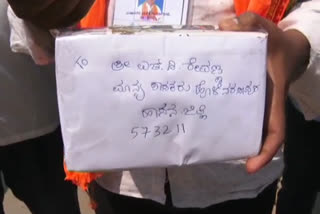 ಗೆ
ಶ್ರೀ ಎಚ್.ಡಿ. ರೇವಣ್ಣ
ಮಾನ್ಯ ಶಾಸಕರು ಹೊಳೆನರಸೀಪುರ
ಹಾಸನ ಜಿಲ್ಲೆ
573211